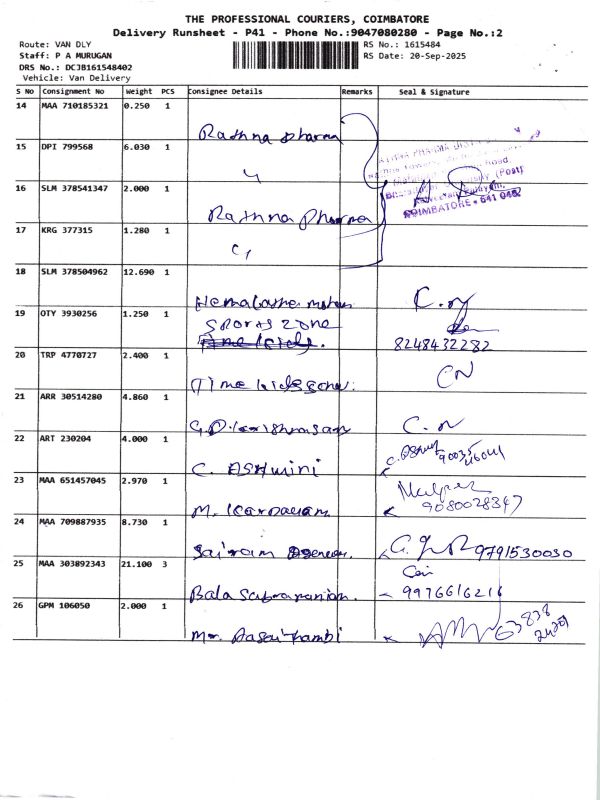 THE PROFESSIONAL COURIERS, COIMBATORE
Delivery Runsheet - P41 - Phone No.:9047080280 - Page No.:2
Route: VAN DLY
Staff: P A MURUGAN
DRS No.: DCJB161548402
Vehicle: Van Delivery
RS No.: 1615484
RS Date: 20-Sep-2025
S No Consignment No Weight PCS Consignee Details Remarks Seal & Signature
14 MAA 710185321 0.250 1
Rathna Pharma
15 DPI 799568 6.030 1
16 SLM 378541347 2.000 1
Rathna Pharma
COIMBATORE - 641 045
17 KRG 377315 1.280 1
18 SLM 378504962 12.690 1
19 OTY 3930256 1.250 1
Sports zone
8248432282
20 TRP 4770727 2.400 1
Time kids zone.
CN
21 ARR 30514280 4.860 1
22 ART 230204 4.000 1
C. ASHwini
23 MAA 651457045 2.970 1
9080028347
24 MAA 709887935 8.730 1
Sairam
9791530030
25 MAA 303892343 21.100 3
Bala Subramanian.
9976616216
26 GPM 106050 2.000 1